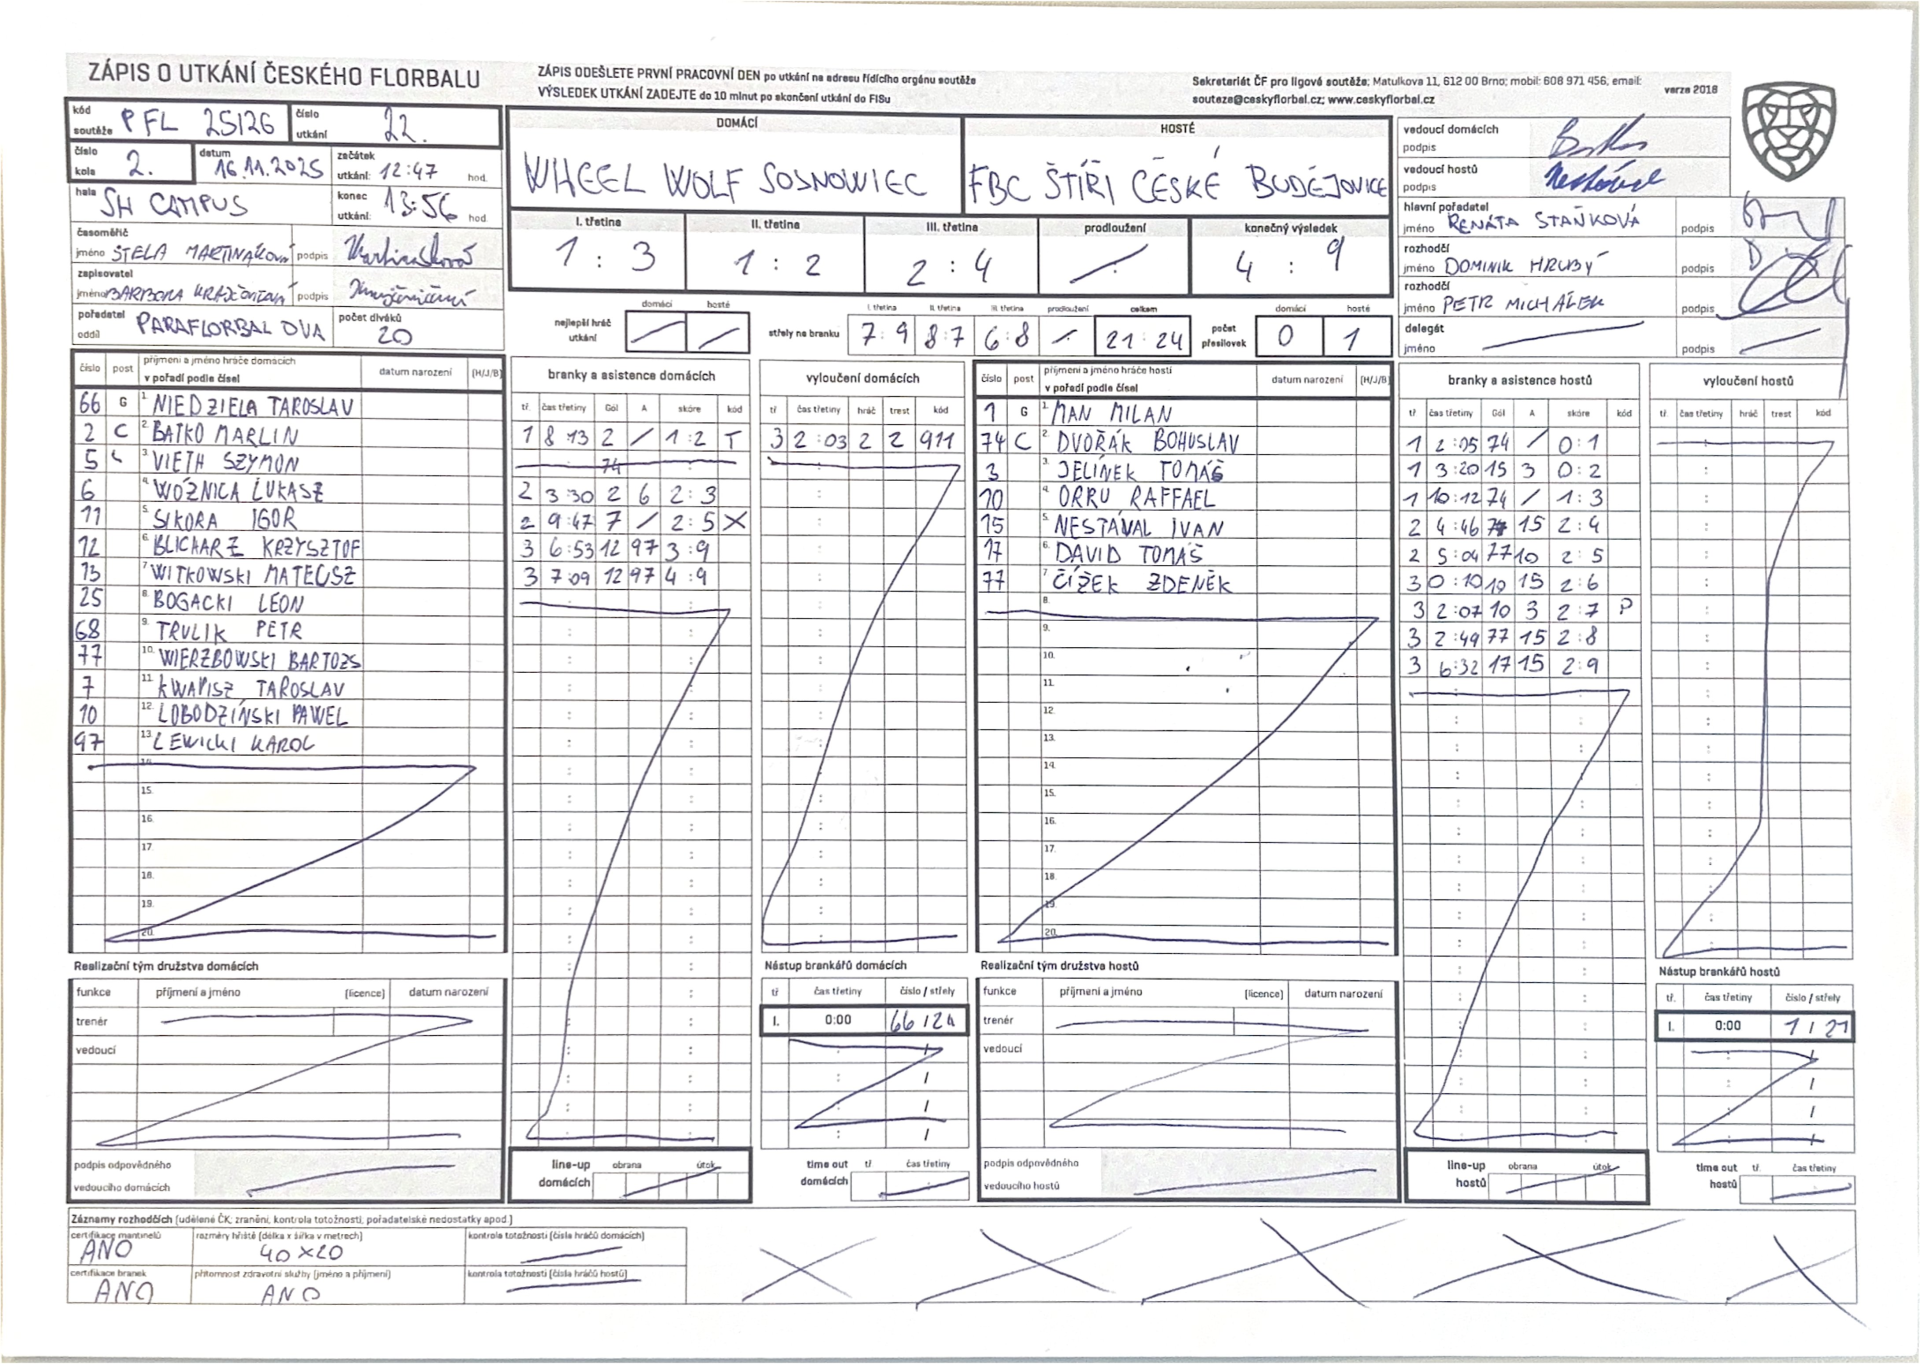 ZÁPIS O UTKÁNÍ ČESKÉHO FLORBALU
ZÁPIS ODEŠLETE PRVNÍ PRACOVNÍ DEN po utkání na adresu řídícího orgánu soutěže
VÝSLEDEK UTKÁNÍ ZADEJTE do 10 minut po skončení utkání do FISu
Sekretariát ČF pro ligové soutěže: Matulkova 11, 612 00 Brno; mobil: 608 971 456, email:
souteze@ceskyflorbal.cz; www.ceskyflorbal.cz
verze 2018
kód soutěže PFL 25/26 číslo utkání 22.
číslo kola 2. datum 16.11.2025 začátek utkání: 12:47 hod.
hala SH CAMPUS konec utkání: 13:56 hod.
časoměřič
jméno STELA MARTINÁKOVÁ podpis
zapisovatel
jméno BARBORA podpis
pořadatel oddíl PARAFLORBAL OVA počet diváků 20
DOMÁCÍ HOSTÉ
WHEEL WOLF SOSNOWIEC FBC ŠTÍŘI ČESKÉ BUDĚJOVICE
I. třetina II. třetina III. třetina prodloužení konečný výsledek
1 : 3 1 : 2 2 : 4 / 4 : 9
nejlepší hráč utkání domácí / hosté /
střely na branku I. třetina II. třetina III. třetina prodloužení celkem
7:9 8:7 6:8 / 21:24
počet přesilovek domácí 0 hosté 1
vedoucí domácích podpis
vedoucí hostů podpis
hlavní pořadatel
jméno RENÁTA STAŇKOVÁ podpis
rozhodčí
jméno DOMINIK HRUBÝ podpis
rozhodčí
jméno PETR MICHÁLEK podpis
delegát
jméno podpis
číslo post příjmení a jméno hráče domácích v pořadí podle čísel datum narození (H/J/B)
66 G 1. NIEDZIELA TAROSLAV
2 C 2. BATKO MARLIN
5 3. VIETH SZYMON
6 4. WOŹNICA LUKASZ
11 5. SIKORA IGOR
12 6. BLICHARZ KRZYSZTOF
13 7. WITKOWSKI MATEUSZ
25 8. BOGACKI LEON
68 9. TRULIK PETR
77 10. WIERZBOWSKI BARTOZS
7 11. KWAPISZ TAROSLAV
10 12. LOBODZIŃSKI PAWEL
97 13. LEWICKI KAROL
14.
15.
16.
17.
18.
19.
20.
branky a asistence domácích
tř. čas třetiny Gól A skóre kód
1 8:13 2 / 1:2 T
2 3:30 2 6 2:3
2 9:47 7 / 2:5 X
3 6:53 12 97 3:9
3 7:09 12 97 4:9
vyloučení domácích
tř čas třetiny hráč trest kód
3 2:03 2 2 911
číslo post příjmení a jméno hráče hostí v pořadí podle čísel datum narození (H/J/B)
1 G 1. MAN MILAN
74 C 2. DVOŘÁK BOHUSLAV
3 3. JELÍNEK TOMÁŠ
10 4. ORRU RAFFAEL
15 5. NESTÁVAL IVAN
17 6. DAVID TOMÁŠ
77 7. ČÍŽEK ZDENĚK
8.
9.
10.
11.
12.
13.
14.
15.
16.
17.
18.
19.
20.
branky a asistence hostů
tř čas třetiny Gól A skóre kód
1 2:05 74 / 0:1
1 3:20 15 3 0:2
1 10:12 74 / 1:3
2 4:46 15 2:4
2 5:04 77 10 2:5
3 0:10 15 2:6
3 2:07 10 3 2:7 P
3 2:49 77 15 2:8
3 6:32 17 15 2:9
vyloučení hostů
tř. čas třetiny hráč trest kód
Realizační tým družstva domácích
funkce příjmení a jméno (licence) datum narození
trenér
vedoucí
podpis odpovědného vedoucího domácích
line-up domácích obrana útok
Nástup brankářů domácích
tř čas třetiny číslo / střely
I. 0:00 66 / 24
time out domácích tř čas třetiny
Realizační tým družstva hostů
funkce příjmení a jméno (licence) datum narození
trenér
vedoucí
podpis odpovědného vedoucího hostů
line-up hostů obrana útok
Nástup brankářů hostů
tř. čas třetiny číslo / střely
I. 0:00 1 / 21
time out hostů tř. čas třetiny
Záznamy rozhodčích (udělené ČK, zranění, kontrola totožnosti, pořadatelské nedostatky apod.)
certifikace mantinelů ANO
rozměry hřiště (délka x šířka v metrech) 40 x 20
kontrola totožnosti (čísla hráčů domácích)
certifikace branek ANO
přítomnost zdravotní služby (jméno a příjmení) ANO
kontrola totožnosti (čísla hráčů hostů)